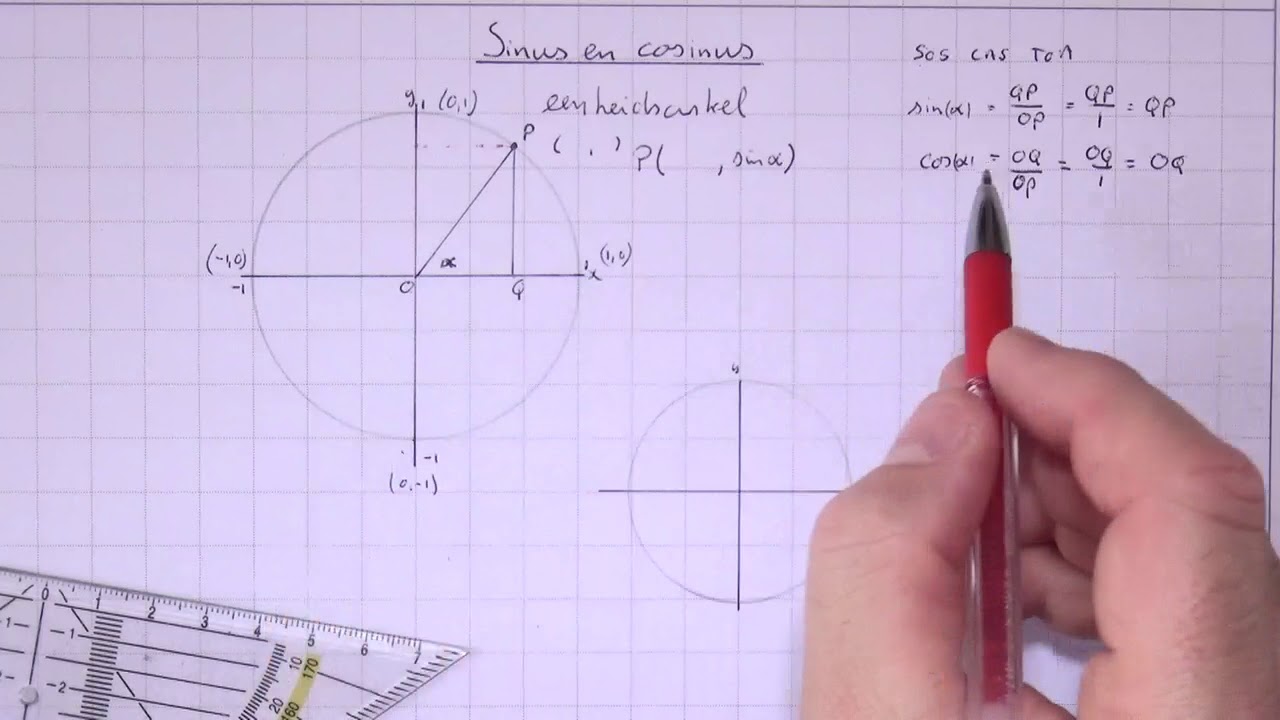 Sinus en cosinus
SOS CAS TOA
y 1 (0,1)
eenheidscirkel
sin(α) = QP/OP = QP/1 = QP
P ( , )
P( , sin α)
cos(α) = OQ/OP = OQ/1 = OQ
(-1,0)
α
1 (1,0)
x
-1
O
Q
-1
(0,-1)
y
0 1 2 3 4 5 6 7
-1 -1
-2
10 170
20 160